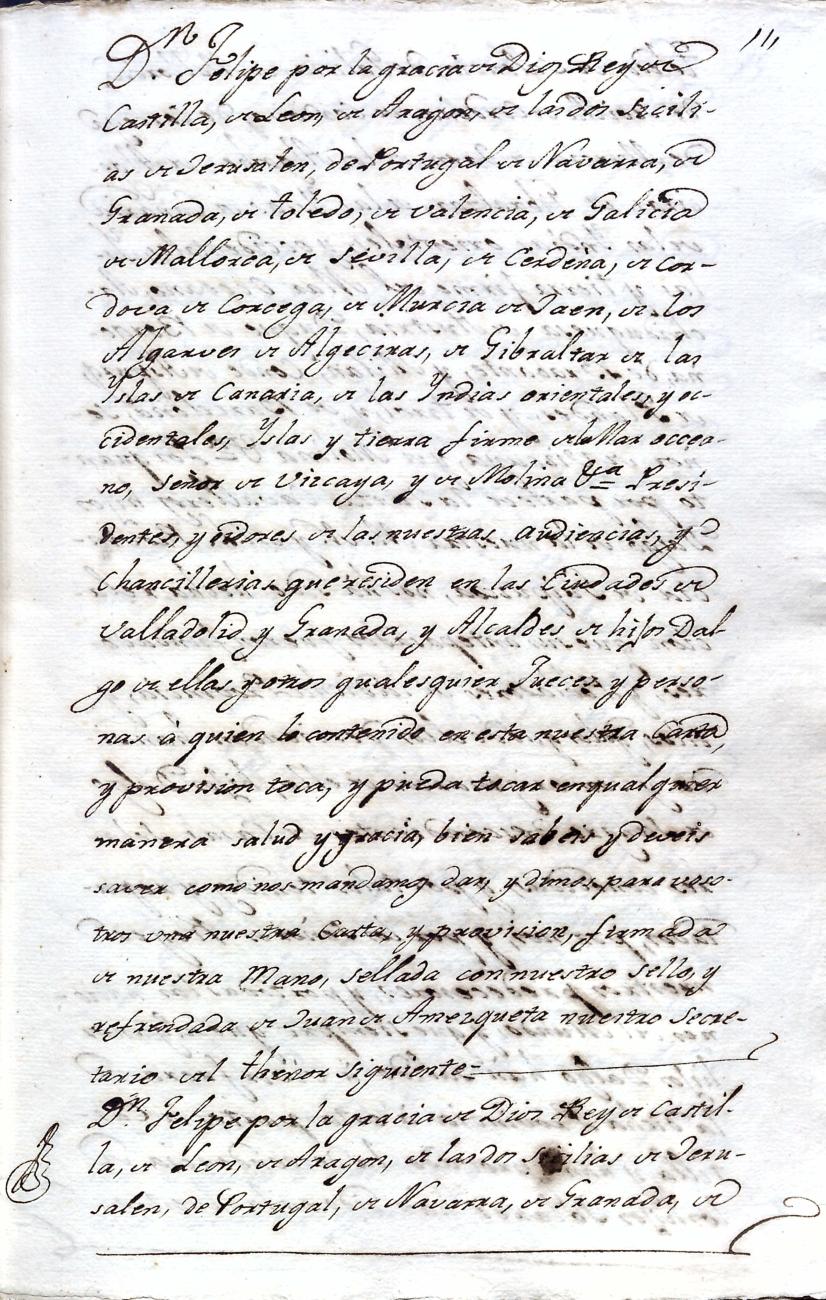 111
Dn. Felipe por la gracia de Dios Rey de
Castilla, de Leon, de Aragon, de las dos Sicili-
as de Jerusalen, de Portugal de Navarra, de
Granada, de toledo, de valencia, de Galicia
de Mallorca, de sevilla, de Cerdeña, de Cor-
dova de Corcega, de Murcia de Jaen, de los
Algarves de Algeciras, de Gibraltar de las
Yslas de Canaria, de las Yndias orientales, y oc-
cidentales, Yslas y tierra firme del Mar occea-
no, señor de Vizcaya, y de Molina &ca Presi-
dentes, y oidores de las nuestras audiencias, y
Chancillerias que residen en las Ciudades de
Valladolid y Granada, y Alcaldes de hijos Dal-
go de ellas y otros qualesquier Jueces y perso-
nas à quien lo contenido en esta nuestra Carta,
y provision toca, y pueda tocar en qualquier
manera salud y gracia, bien sabeis y deveis
saver como nos mandamos dar, y dimos para voso-
tros una nuestra Carta, y provision, firmada
de nuestra Mano, sellada con nuestro sello, y
refrendada de Juan de Amezqueta nuestro Secre-
tario del thenor siguiente=
Dn. Felipe por la gracia de Dios Rey de Castil-
la, de Leon, de Aragon, de las dos sicilias de Jeru-
salen, de Portugal, de Navarra, de Granada, de